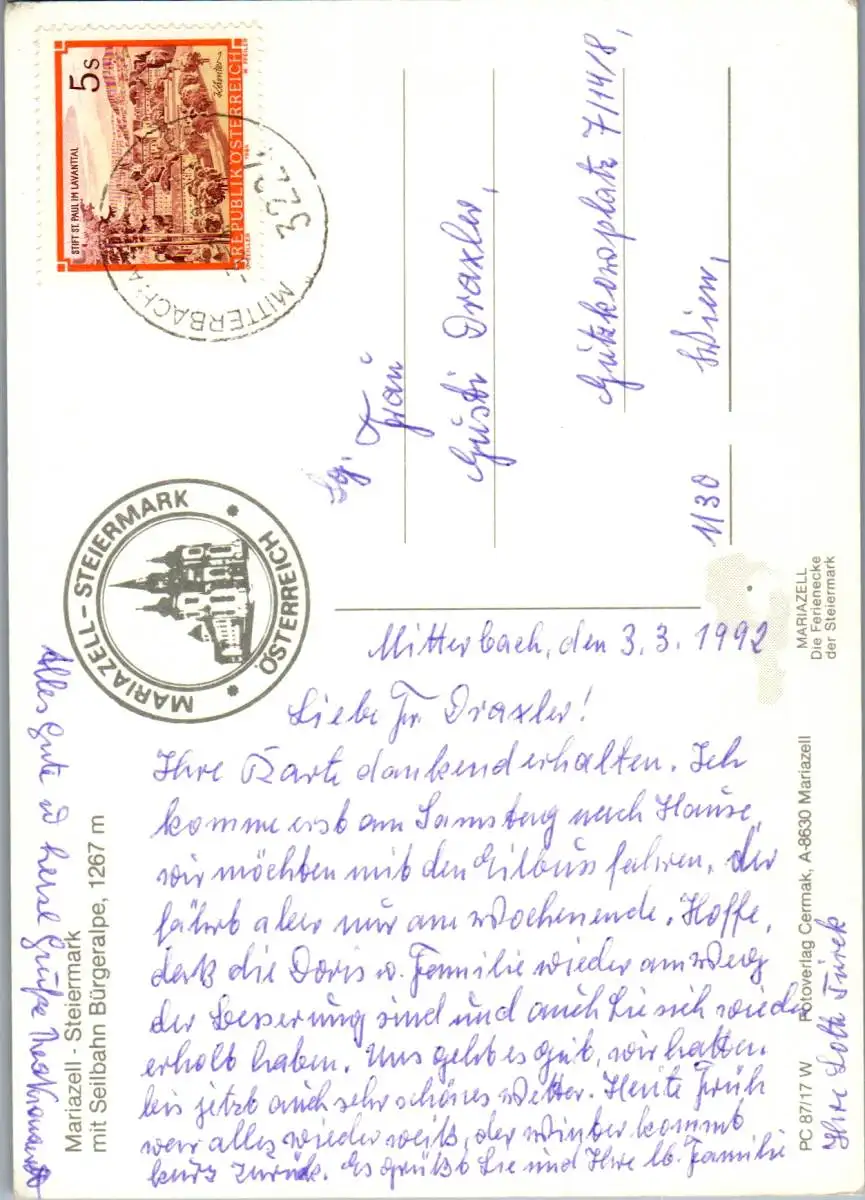 5 s
STIFT ST. PAUL IM LAVANTTAL
Kärnten
REPUBLIK ÖSTERREICH
1984
322
MITTERBACH
MARIAZELL – STEIERMARK
ÖSTERREICH
Sg.
Frau
Gusti Draxler,
Gützkowplatz 7/14/8,
1130 Wien,
Mitterbach, den 3.3.1992
Liebe Fr. Draxler!
Ihre Karte dankend erhalten. Ich
komme erst am Samstag nach Hause,
wir möchten mit den Eilbuss fahren, der
fährt aber nur am Wochenende. Hoffe,
daß die Doris u. Familie wieder am Weg
der Besserung sind und auch Sie sich wieder
erholt haben. Uns geht es gut, wir hatten
bis jetzt auch sehr schönes Wetter. Heute Früh
war alles wieder weiß, der Winter kommt
kurz zurück. Es grüßt Sie und Ihre lb. Familie
Ihre Lotte Türek
Alles Gute u herzl Grüße
Mariazell - Steiermark
mit Seilbahn Bürgeralpe, 1267 m
MARIAZELL
Die Ferienecke
der Steiermark
PC 87/17 W Fotoverlag Cermak, A-8630 Mariazell